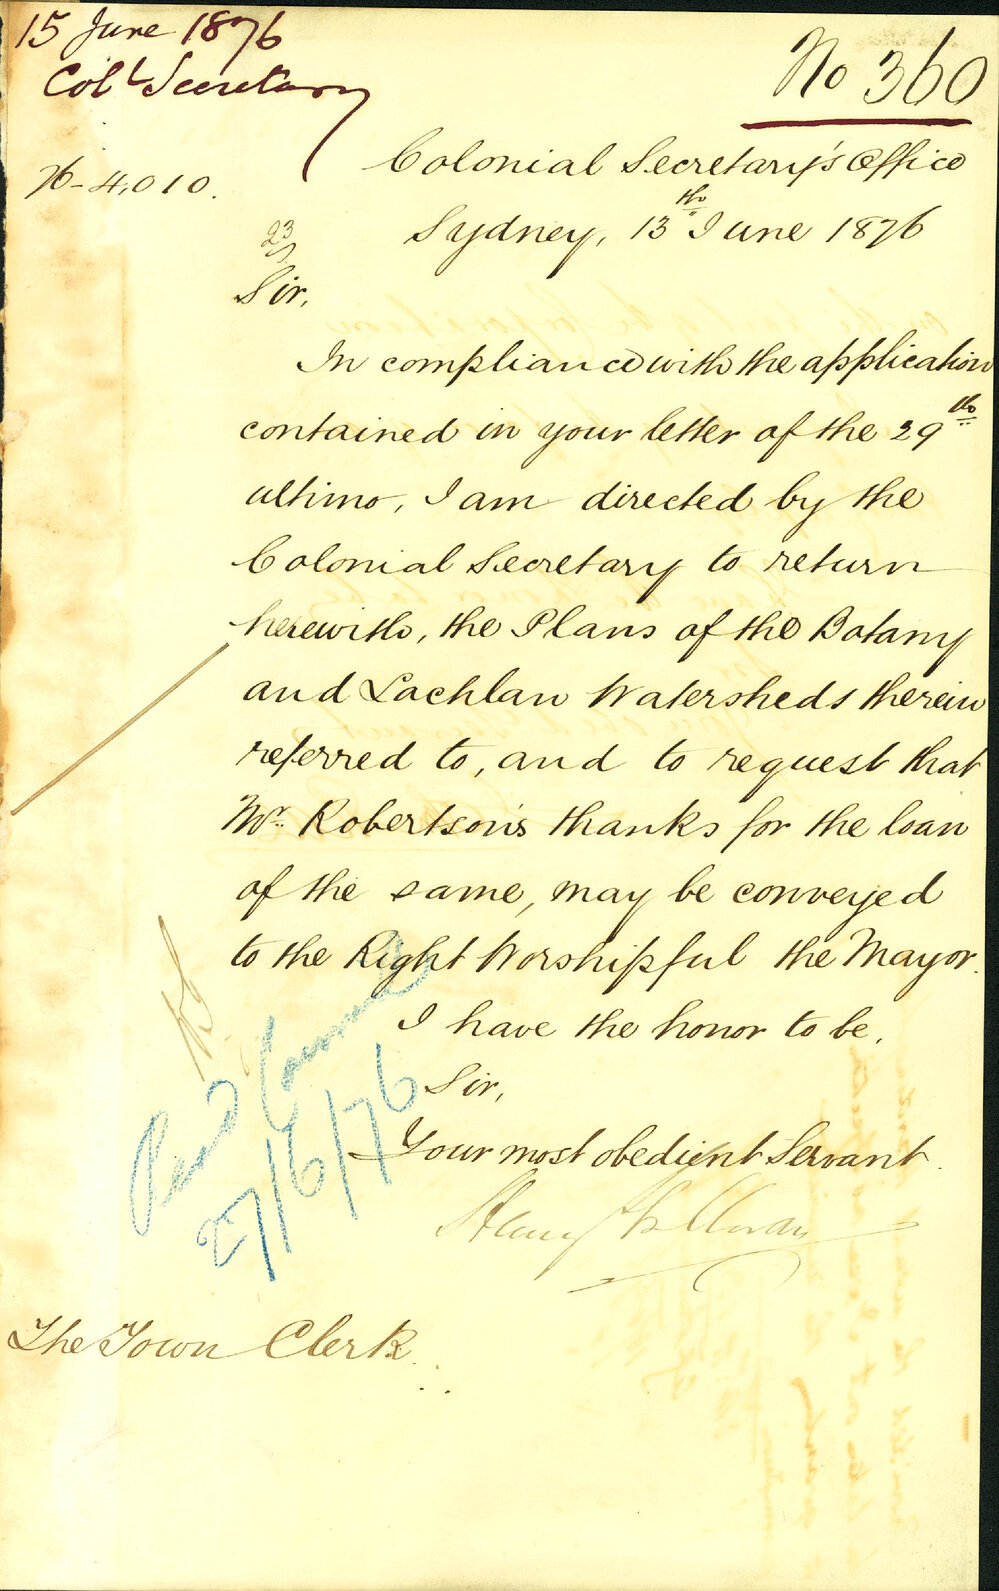 15 June 1876
Col^l Secretary
No 360
76-4,010.
Colonial Secretary's Office
Sydney, 13th June 1876
23
Sir,
In compliance with the application
contained in your letter of the 29th
ultimo, I am directed by the
Colonial Secretary to return
herewith, the Plans of the Botany
and Lachlan Watersheds therein
referred to, and to request that
Mr. Robertson's thanks for the loan
of the same, may be conveyed
to the Right Worshipful the Mayor.
I have the honor to be,
Sir,
Your most obedient Servant.
Henry Halloran
Read Council
27/6/76
The Town Clerk